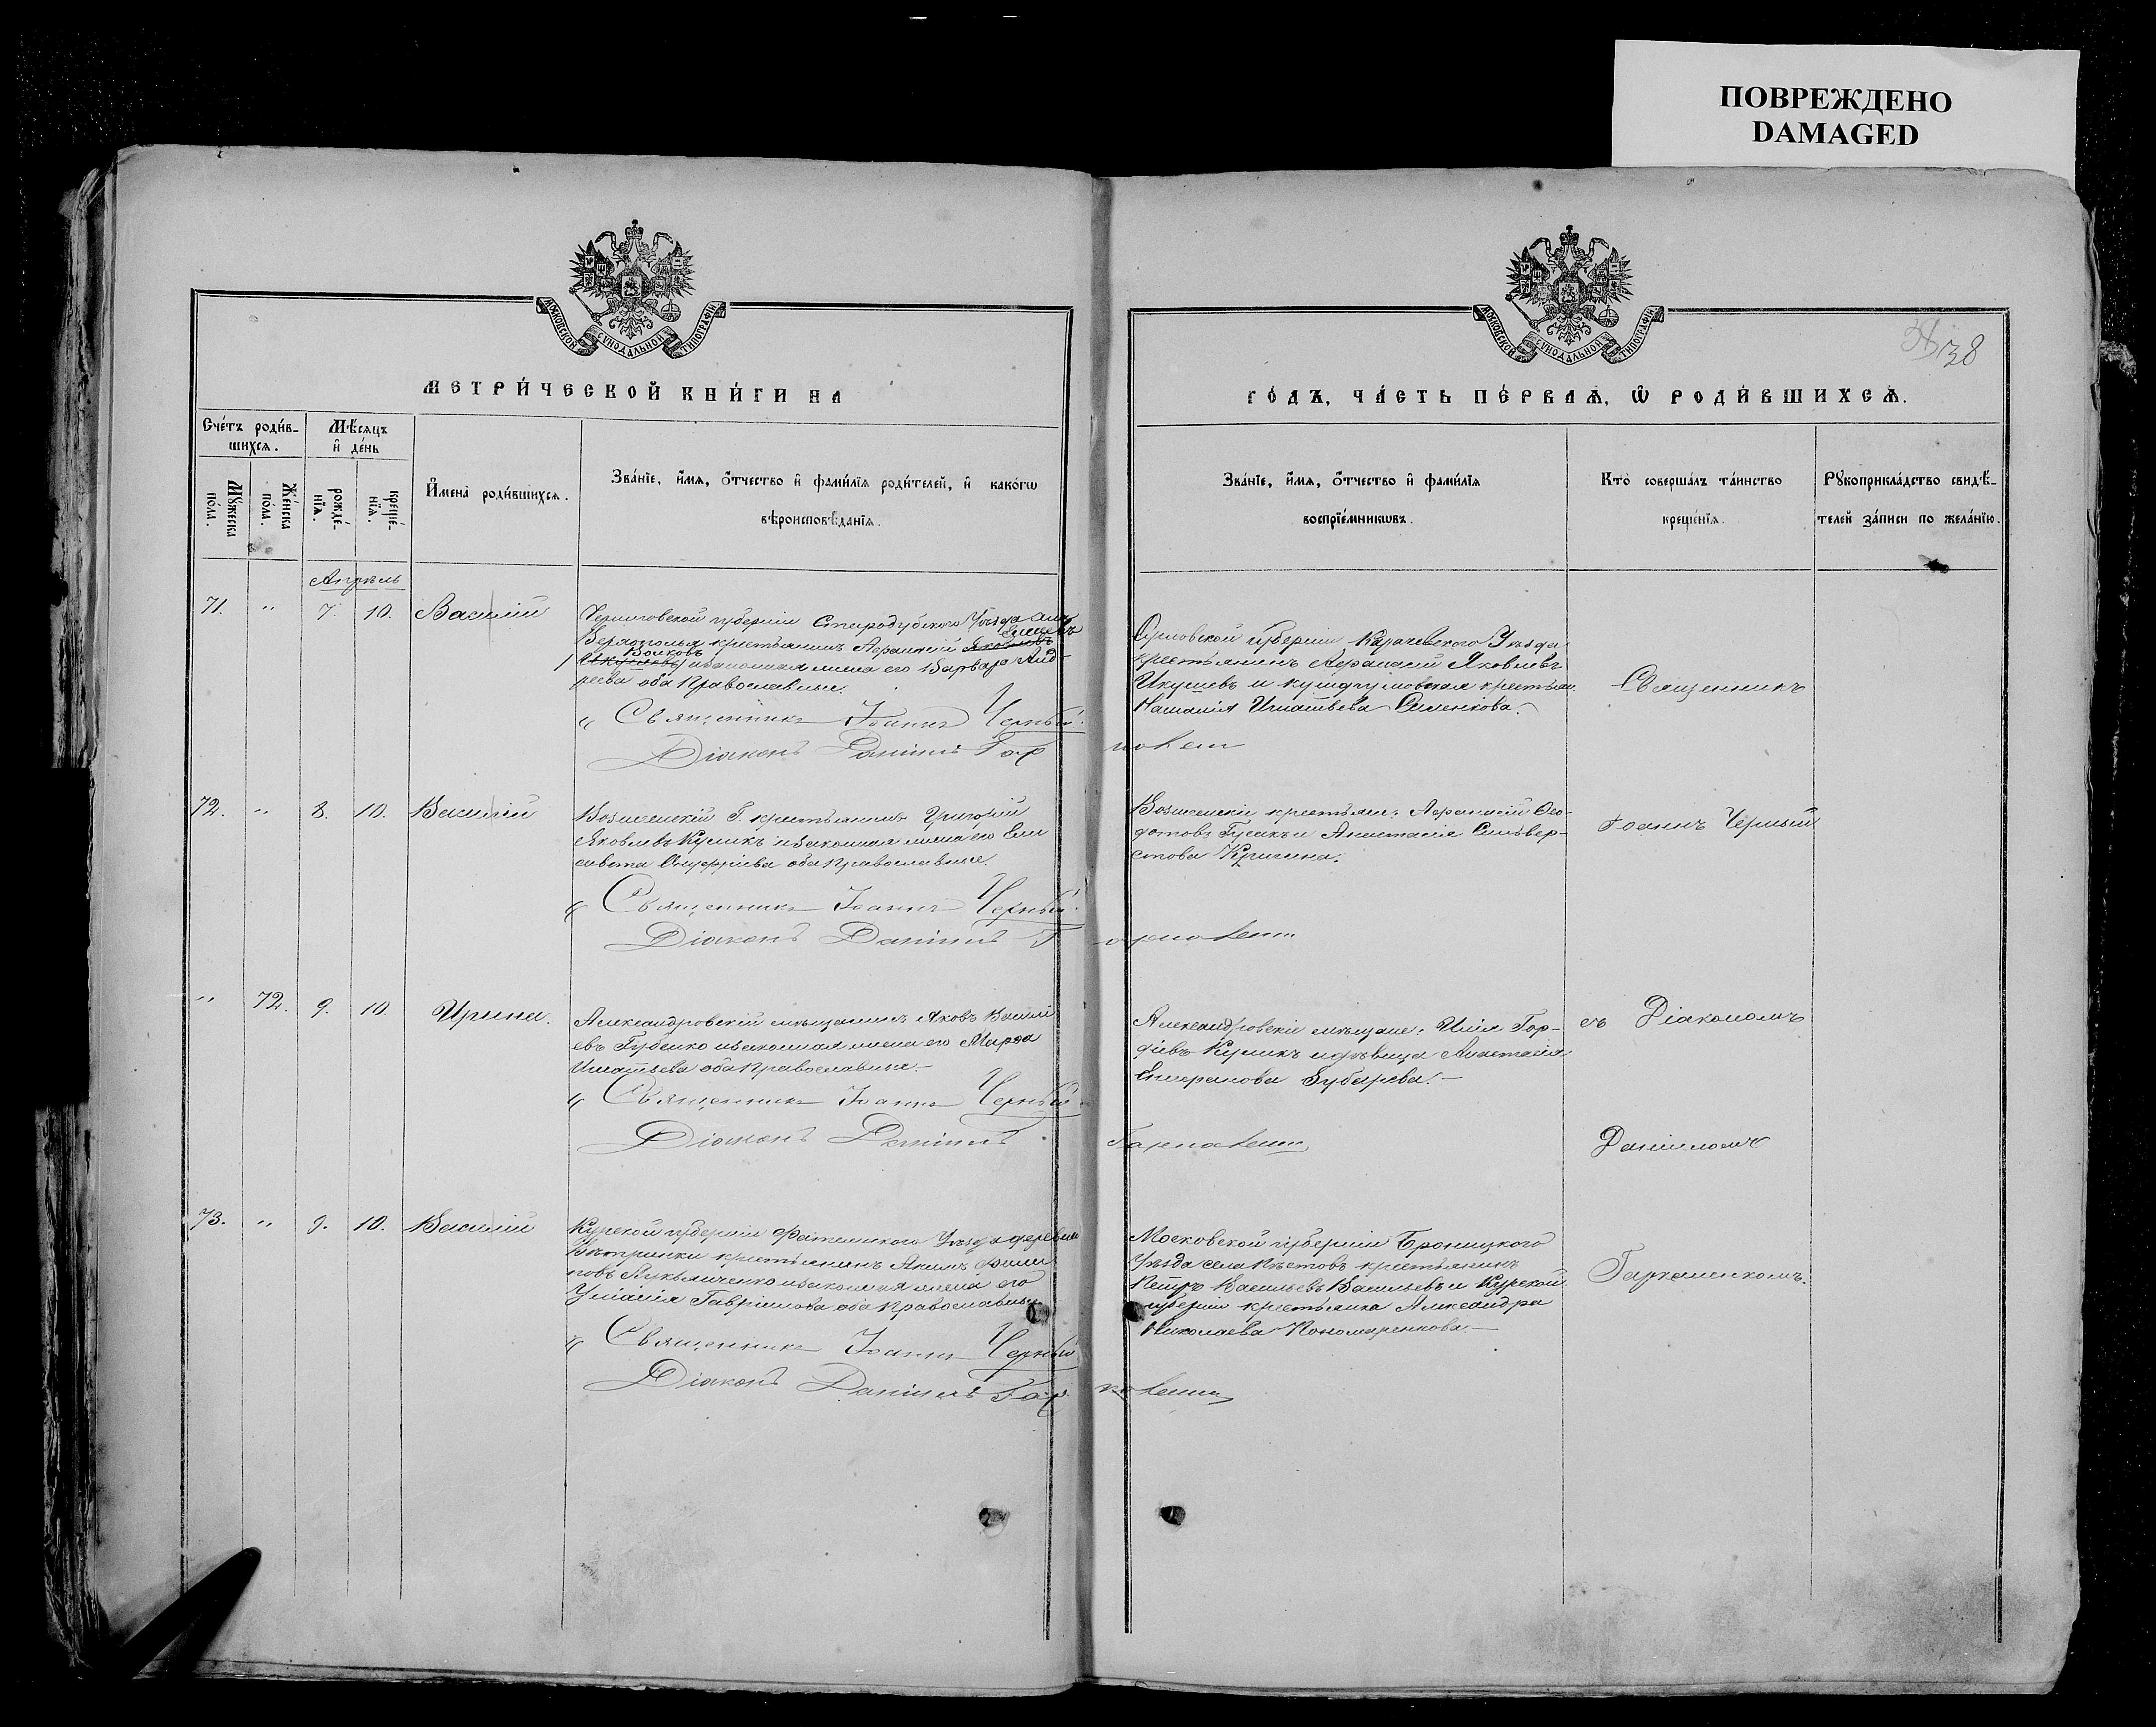 ПОВРЕЖДЕНО
DAMAGED
МОСКОВСКОЙ СУНОДАЛЬНОЙ ТИПОГРАФІИ
МЕТРИ́ЧЕСКОЙ КНИ́ГИ НА
Сче́тъ роди́в-
шихсѧ.
Мѣ́сяцъ
и҆ де́нь
Мꙋ́жеска по́ла.
Же́нска по́ла.
рожде́-
нїѧ.
креще́-
нїѧ.
И҆мена̀ роди́вшихсѧ.
Зва́нїе, и҆́мѧ, ѻ҆́тчество и҆ фами́лїѧ роди́телей, и҆ како́гѡ
вѣроисповѣ́данїѧ.
Апрѣль
71. " 7. 10. Василій
Черниговской губерніи Стародубскаго Уѣзда
крестьянинъ Аѳанасій Яковлевъ
Волковъ
изаконная жена его Варвара Анд-
реева оба Православные.
" Священникъ Іоаннъ Черный.
Діаконъ Даніилъ Гар
72. " 8. 10. Василій
Вознесенскій крестьянинъ Григорій
Яковлевъ Куликъ изаконная жена его Ели
савета Онуфріева оба Православные.
" Священникъ Іоаннъ Черный.
Діаконъ Даніилъ Г
" 72. 9. 10. Ирина.
Александровскій мѣщанинъ Яковъ Василі
евъ Губенко изаконная жена его Марѳа
Игнатьева оба Православные.
" Священникъ Іоаннъ Черный
Діаконъ Даніилъ
73. " 9. 10. Василій
Курской губерніи Фатежскаго Уѣзда деревни
крестьянинъ Акимъ Фили
повъ Лукьянченко изаконная жена его
Уліанія Гавріилова оба Православные
" Священникъ Іоаннъ Черный
Діаконъ Даніилъ Гар
МОСКОВСКОЙ СУНОДАЛЬНОЙ ТИПОГРАФІИ
38
ГО́ДЪ, ЧА́СТЬ ПЕ́РВАѦ, Ѡ҆ РОДИ́ВШИХСѦ.
Зва́нїе, и҆́мѧ, ѻ҆́тчество и҆ фами́лїѧ
воспрїе́мникѡвъ.
Кто̀ соверша́лъ та́инство
креще́нїѧ.
Рꙋкоприкла́дство свидѣ́-
телей за́писи по жела́нїю.
Орловской губерніи Карачевскаго Уѣзда
крестьянинъ Аѳанасій Яковлевъ
Икушевъ и крестьян.
Наталія Игнатьева
Священникъ
Вознесенскіе крестьяне: Аѳанасій Ѳео-
дотовъ Гусакъ и Анастасія Сильвер-
стова Кригина.
Іоаннъ Черный
Александровскіе мѣщане: Илія Гор-
діевъ Куликъ и дѣвица Анастасія
Губарева.
съ Діакономъ
Даніиломъ
Московской губерніи Бронницкаго
Уѣзда села крестьянинъ
Петръ Васильевъ Васильевъ и Курской
губерніи крестьянка Александра
Николаева Пономаренкова.